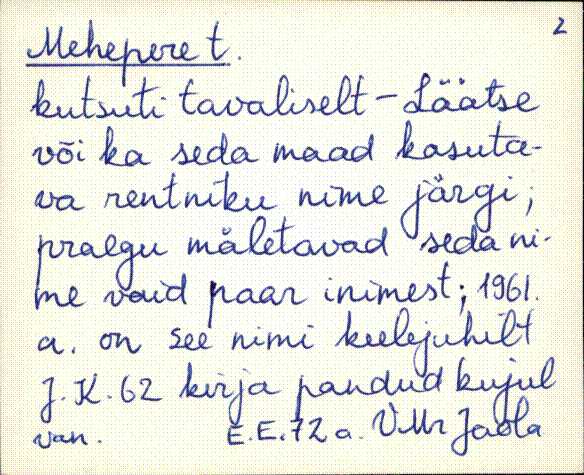 2
Mehepere t.
kutsuti tavaliselt – Läätse
või ka seda maad kasuta-
va rentniku nime järgi;
praegu mäletavad seda ni-
me vaid paar inimest; 1961.
a. on see nimi keelejuhilt
J.K. 62 kirja pandud kujul
van. E.E. 72 a. VMr Jaola